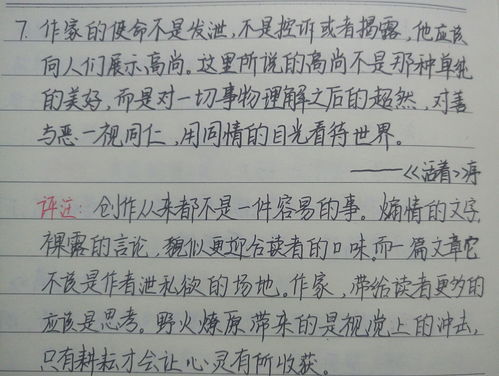 7. 作家的使命不是发泄，不是控诉或者揭露，他应该
向人们展示高尚。这里所说的高尚不是那种单纯
的美好，而是对一切事物理解之后的超然，对善
与恶一视同仁，用同情的目光看待世界。
——《活着》序
评注：创作从来都不是一件容易的事。煽情的文字，
裸露的言论，貌似更迎合读者的口味。而一篇文章它
不该是作者泄私欲的场地。作家，带给读者更多的
应该是思考。野火燎原带来的是视觉上的冲击，
只有耕耘才会让心灵有所收获。